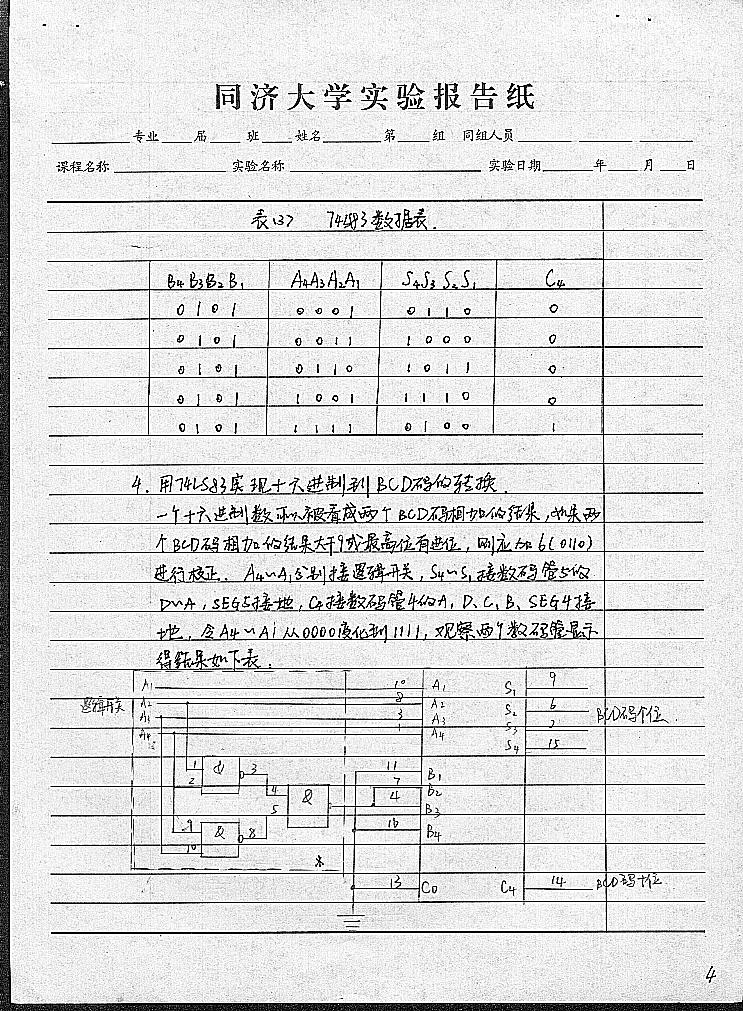 同济大学实验报告纸
专业 届 班 姓名 第 组 同组人员
课程名称 实验名称 实验日期 年 月 日
表(3) 74LS83数据表.
B4 B3 B2 B1 A4 A3 A2 A1 S4 S3 S2 S1 C4
0 1 0 1 0 0 0 1 0 1 1 0 0
0 1 0 1 0 0 1 1 1 0 0 0 0
0 1 0 1 0 1 1 0 1 0 1 1 0
0 1 0 1 1 0 0 1 1 1 1 0 0
0 1 0 1 1 1 1 1 0 1 0 0 1
4. 用74LS83实现十六进制到BCD码的转换.
一个十六进制数可以被看成两个BCD码相加的结果,如果两
个BCD码相加的结果大于9或最高位有进位,则应加6(0110)
进行校正. A4~A1分别接逻辑开关, S4~S1接数码管5的
D~A, SEG5接地, C4接数码管4的A, D、C、B、SEG4接
地, 令A4~A1从0000变化到1111, 观察两个数码管显示
得结果如下表.
A1 10 A1 S1 9
逻辑开关 A2 8 A2 S2 6
A3 3 A3 S3 2 BCD码个位
A4 1 A4 S4 15
1 2 & 3 11 B1
7 B2
4 5 & 4 B3
9 10 & 8 16 B4
13 C0 C4 14 BCD码十位
4